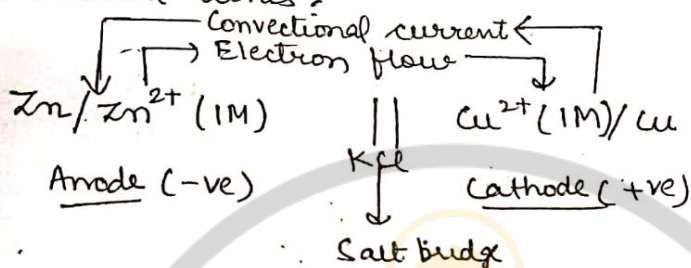 Convectional current
Electron flow
Zn/Zn²⁺ (1M) || Cu²⁺(1M)/Cu
KCl
Anode (-ve) Cathode (+ve)
Salt bridge